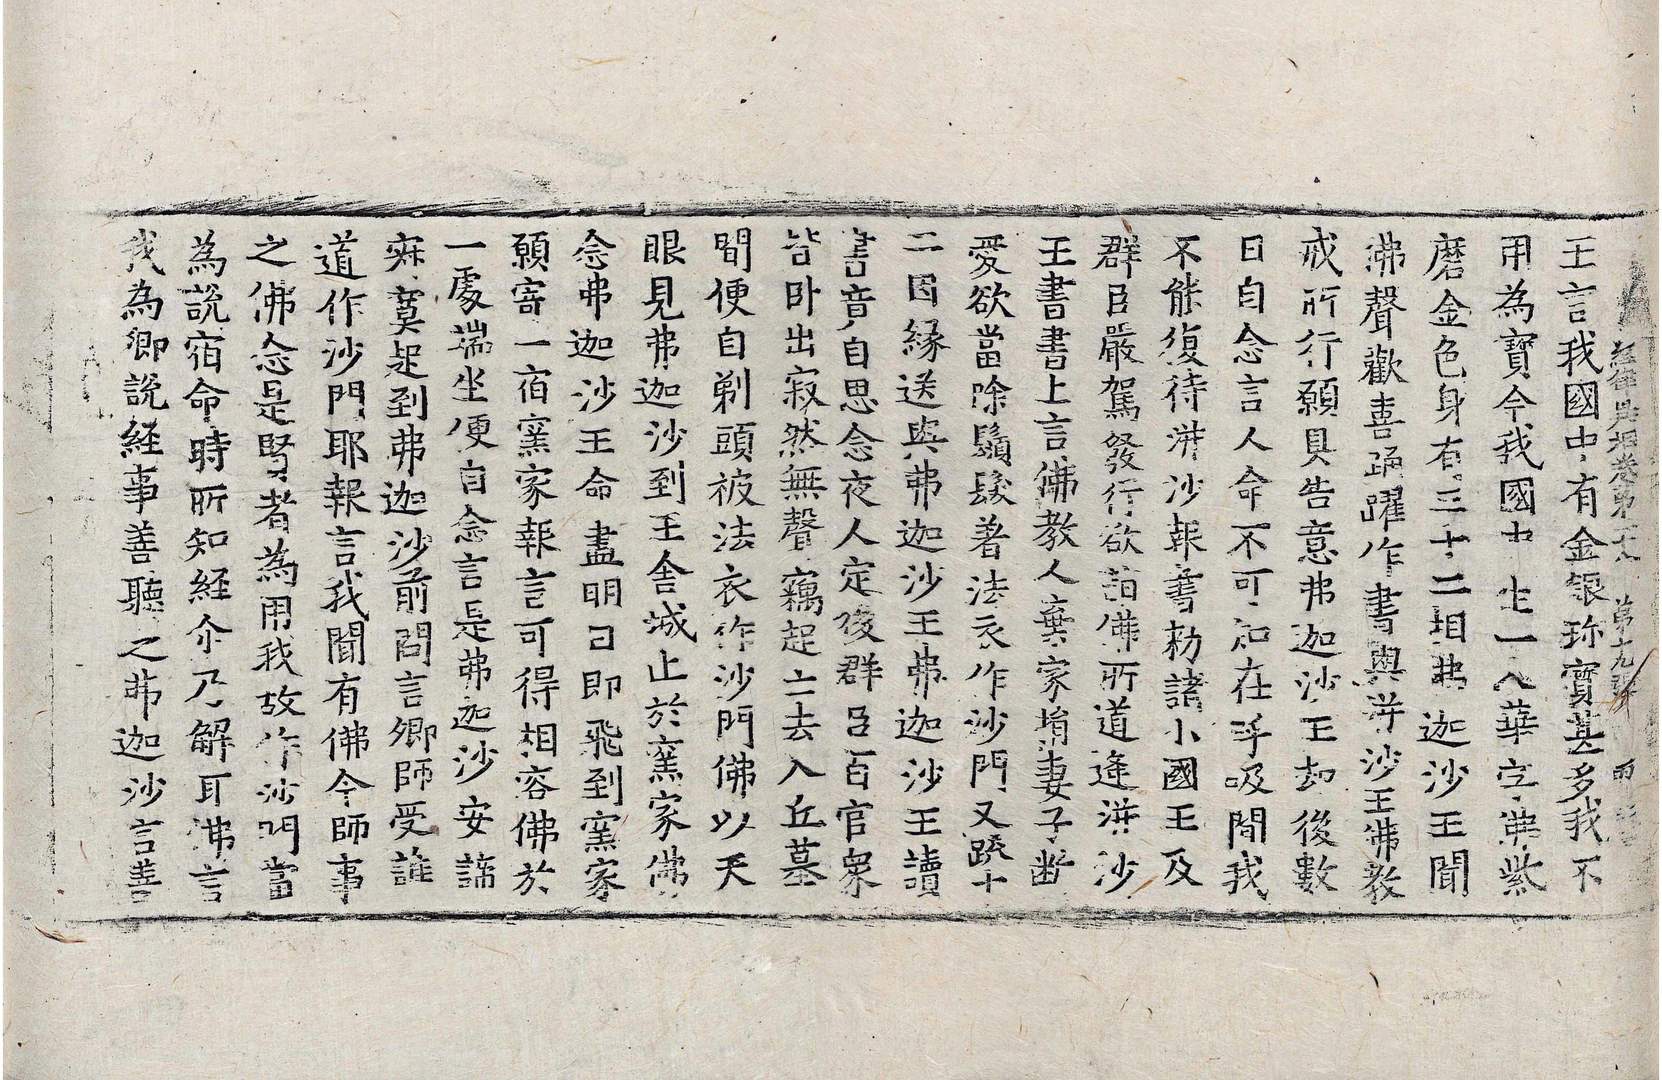 經律異相卷第二十八 第九張 兩
王言我國中有金銀珎寶甚多我不
用爲寶今我國中生一人華字佛紫
磨金色身有三十二相弗迦沙王聞
沸聲歡喜踊躍作書與洴沙王佛教
戒所行願具告意弗迦沙王却後數
日自念言人命不可知在呼吸間我
不能復待洴沙報書勑諸小國王及
群臣嚴駕發行欲詣佛所道逢洴沙
王書書上言佛教人棄家捐妻子断
愛欲當除鬚髮著法衣作沙門又䟽十
二因緣送與弗迦沙王弗迦沙王讀
書音自思念夜人定後群臣百官衆
皆卧出寂然無聲竊起亡去入丘墓
間便自剃頭被法衣作沙門佛以天
眼見弗迦沙到王舍城止於窯家佛
念弗迦沙王命盡明日即飛到窯家
願寄一宿窯家報言可得相容佛於
一處端坐便自念言是弗迦沙安諦
寂寞起到弗迦沙前問言卿師受誰
道作沙門耶報言我聞有佛今師事
之佛念是賢者爲用我故作沙門當
爲說宿命時所知經尒乃解耳沸言
我爲卿說經事善聽之弗迦沙言善